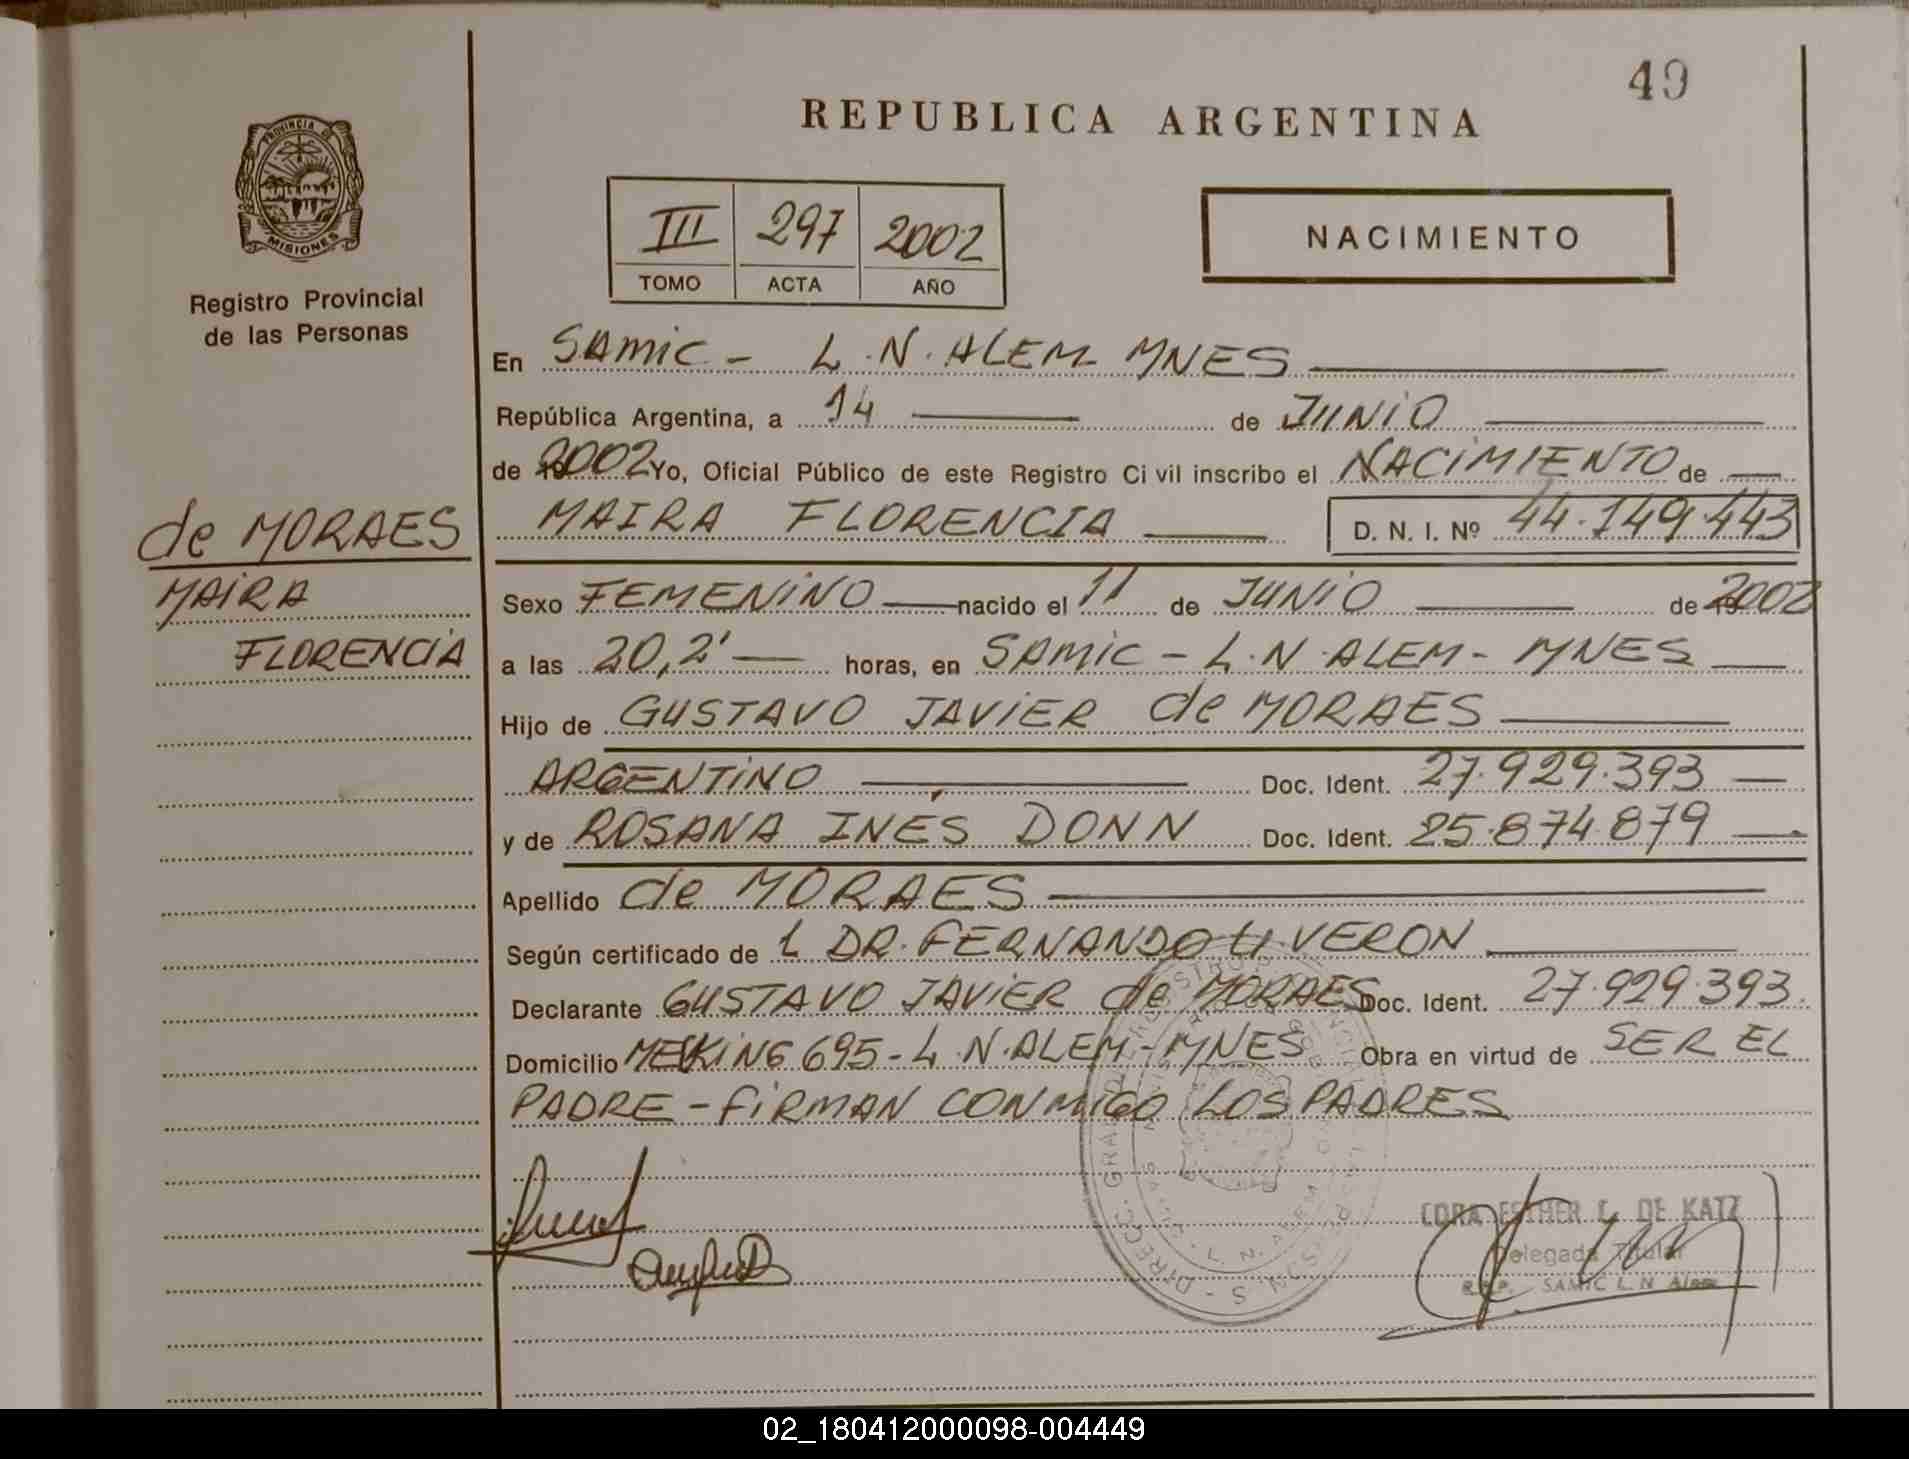 49
REPUBLICA ARGENTINA
PROVINCIA DE
MISIONES
Registro Provincial
de las Personas
III 297 2002
TOMO ACTA AÑO
NACIMIENTO
En SAMIC - L.N. ALEM MNES
República Argentina, a 14 de JUNIO
de 2002 Yo, Oficial Público de este Registro Civil inscribo el NACIMIENTO de
MAIRA FLORENCIA D. N. I. Nº 44.149.443
de MORAES
MAIRA
FLORENCIA
Sexo FEMENINO nacido el 11 de JUNIO de 2002
a las 20,2' horas, en SAMIC - L.N. ALEM - MNES
Hijo de GUSTAVO JAVIER de MORAES
ARGENTINO Doc. Ident. 27.929.393
y de ROSANA INÉS DONN Doc. Ident. 25.874.879
Apellido de MORAES
Según certificado de 1 DR. FERNANDO VERON
Declarante GUSTAVO JAVIER de MORAES Doc. Ident. 27.929.393
Domicilio 695 - L.N. ALEM - MNES Obra en virtud de SER EL
PADRE - FIRMAN CONMIGO LOS PADRES
CORA ESTHER DE KATZ
Delegada Titular
SAMIC L. N Alem
02_180412000098-004449